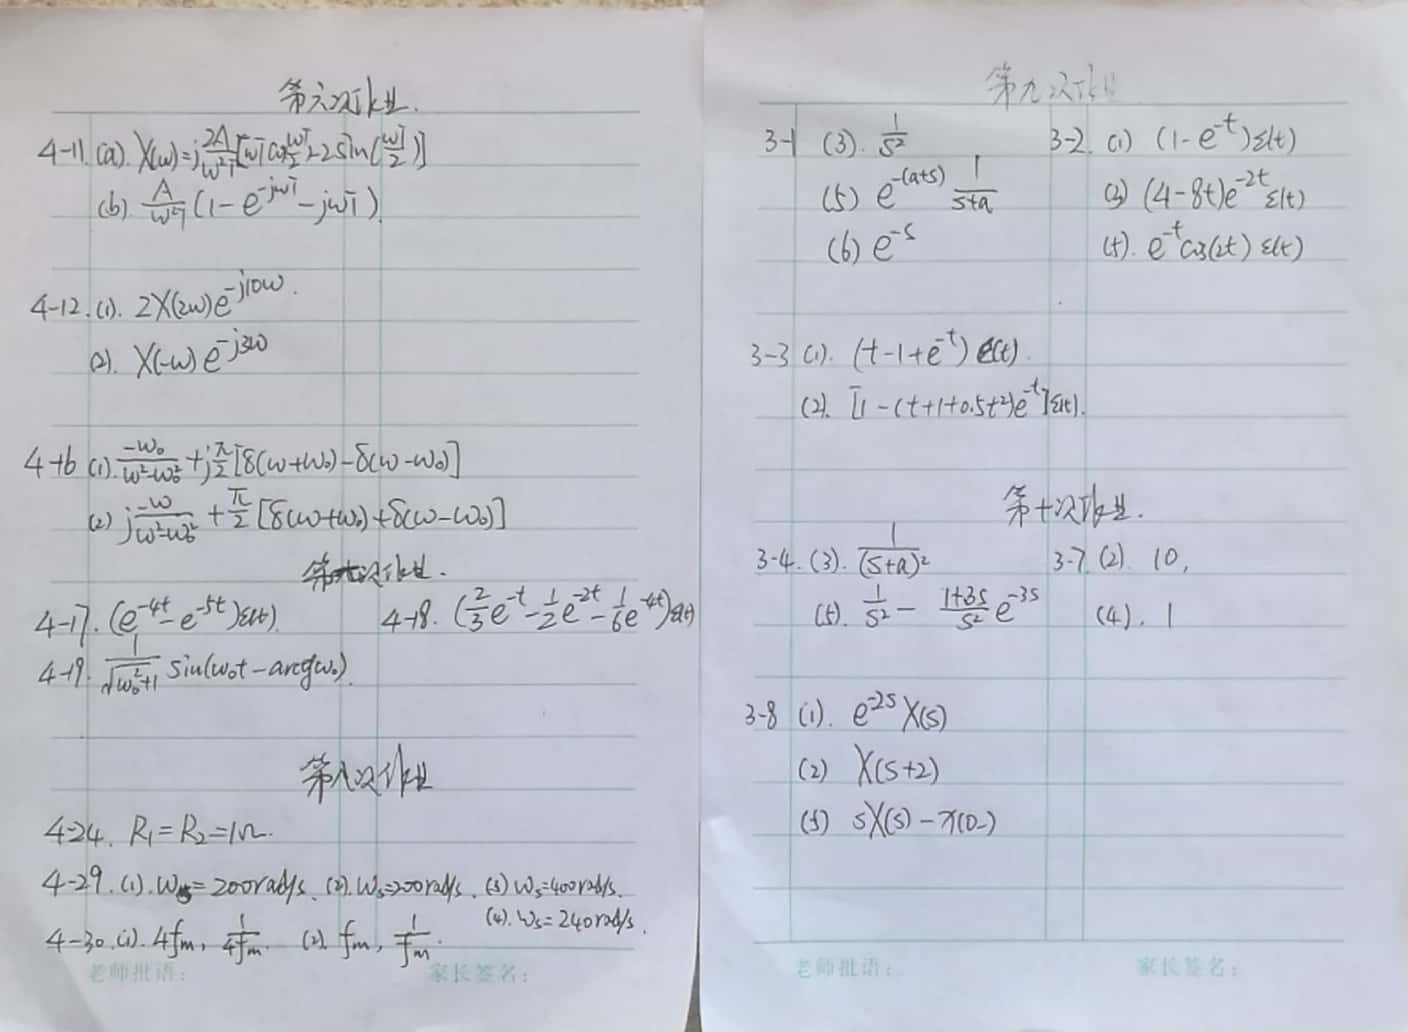 第六次作业.
4-11. (a). X(ω)=j 2A/ω²T [ωT cos ωT/2 - 2 sin(ωT/2)]
(b). A/ω²T (1-e^{-jωT}-jωT)
4-12. (1). 2X(2ω)e^{-j10ω}.
(2). X(-ω)e^{-j3ω}
4-16 (1). -ω₀/(ω²-ω₀²) + j π/2 [δ(ω+ω₀)-δ(ω-ω₀)]
(2) j -ω/(ω²-ω₀²) + π/2 [δ(ω+ω₀)+δ(ω-ω₀)]
第 次作业.
4-17. (e^{-4t}-e^{-5t})ε(t). 4-18. (2/3 e^{-t} - 1/2 e^{-2t} - 1/6 e^{-4t})ε(t)
4-19. 1/√(ω₀²+1) sin(ω₀t-arctgω₀).
第八次作业
4-24. R₁=R₂=1Ω.
4-29. (1). ωs=200rad/s. (2). ωs=200rad/s. (3) ωs=400rad/s.
(4). ωs=240rad/s.
4-30. (1). 4fm, 1/4fm. (2). fm, 1/fm.
老师批语: 家长签名:
第九次作业
3-1 (3). 1/s² 3-2. (1) (1-e^{-t})ε(t)
(5) e^{-(a+s)} 1/(s+a) (3) (4-8t)e^{-2t}ε(t)
(6) e^{-s} (5). e^{-t}cos(2t)ε(t)
3-3 (1). (t-1+e^{-t})ε(t).
(2). [1-(t+1+0.5t²)e^{-t}]ε(t).
第十次作业.
3-4. (3). 1/(s+a)² 3-7. (2). 10,
(5). 1/s² - (1+3s)/s² e^{-3s} (4). 1
3-8 (1). e^{-2s}X(s)
(2) X(s+2)
(3) sX(s)-x(0-)
老师批语: 家长签名: